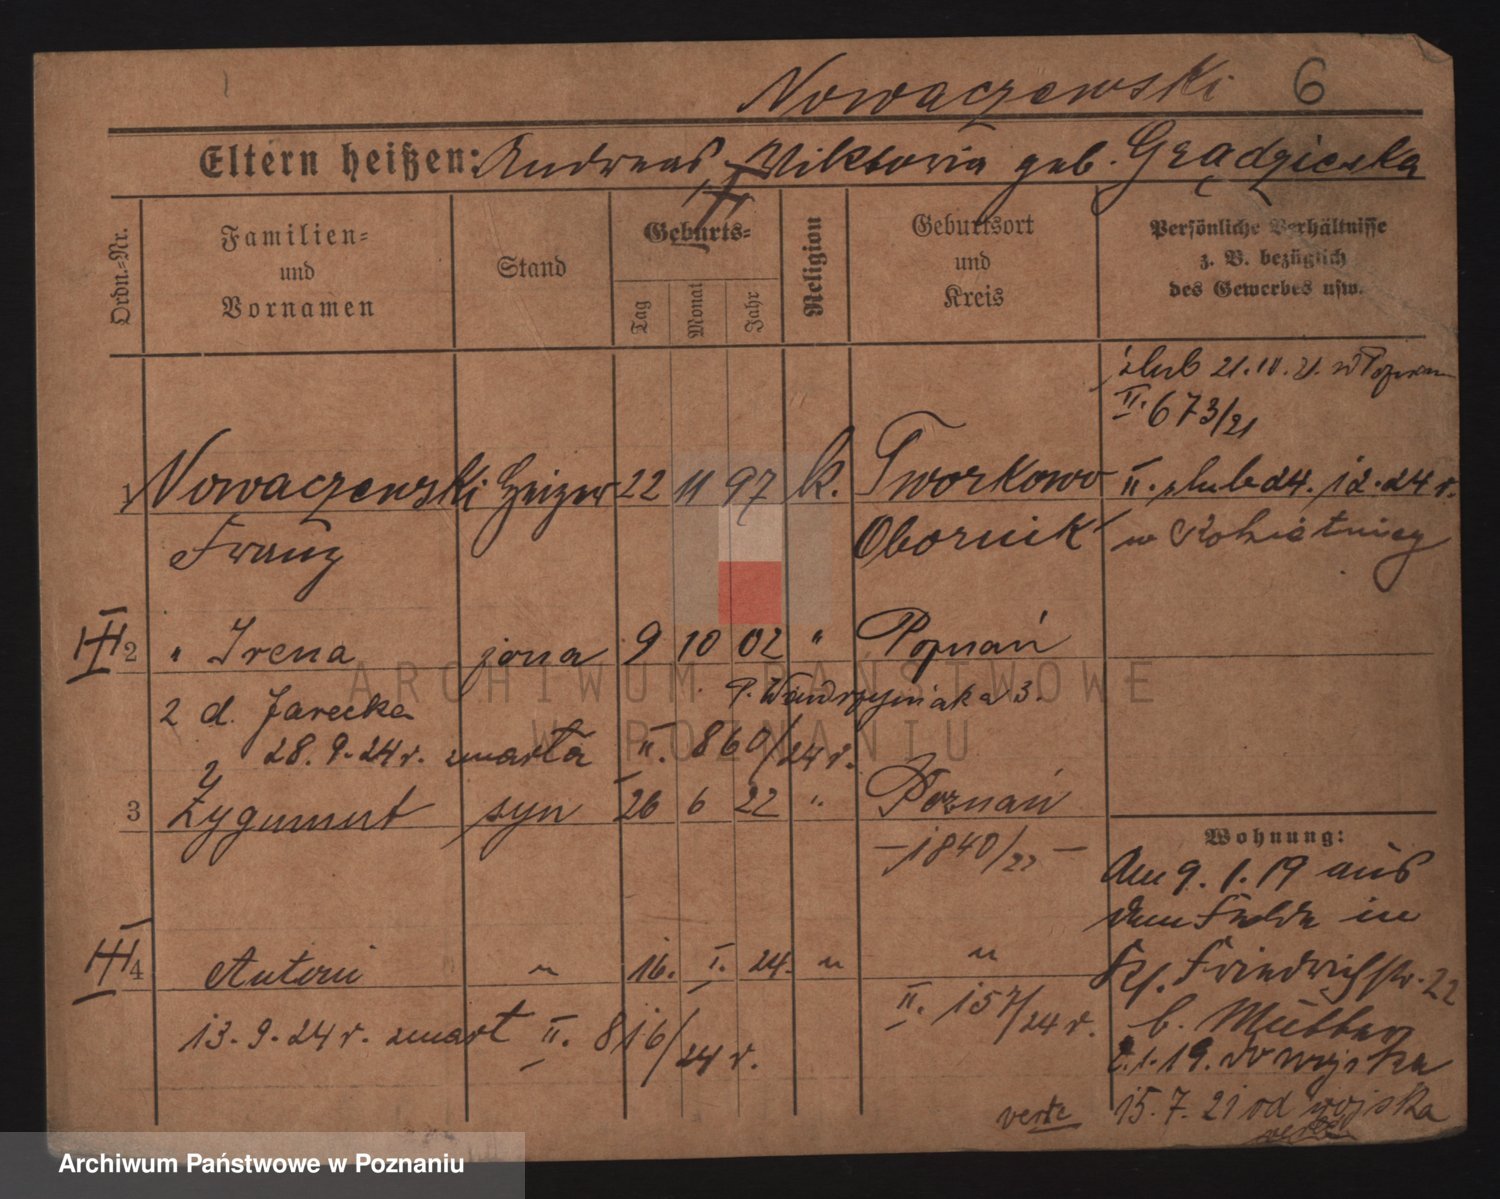 Nowaczewski 6
Eltern heißen: Andreas, Viktoria geb. Grądzielska
Ordn.-Nr.
Familien-
und
Vornamen
Stand
Geburts-
Tag
Monat
Jahr
Religion
Geburtsort
und
Kreis
Persönliche Verhältnisse
z. B. bezüglich
des Gewerbes usw.
ślub 21.10.21. w Poznan
II. 673/21
1 Nowaczewski Heizer 22 11 97 k. Tworkowo II. ślub 24. 12. 24 r.
Franz Obornik w Rokietnicy
2 " Irena żona 9 10 02 " Poznań
2 d. Jarecka P. Wawrzyniaka 3.
28. 9. 24 r. zmarła II. 860/24 r.
3 Zygmunt syn 26 6 22 " Poznań
— 1840/22 —
Wohnung:
Am 9. 1. 19 aus
dem Felde in
Friedrichstr. 22
b. Mutter
III 4 Antoni " 16. I. 24. " "
II. 157/24 r.
13. 9. 24 r. zmarł II. 816/24 r.
1. 19. do wojska
15. 7. 21 od wojska
verte
ARCHIWUM PAŃSTWOWE
W POZNANIU
Archiwum Państwowe w Poznaniu